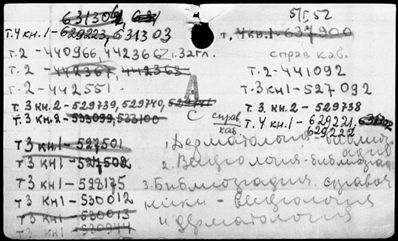 631306
т.4 кн.1-629223, 631303
т.2-440966, 442366 1.заглв.
т.2-442367, 442363
т.2-442551.
т.3 кн.2-529739, 529740,
т.3 кн.2-533099, 533100
т3 кн1-527501
т3 кн1-527502
т3 кн1-528175
т3 кн1-530012
т3 кн1-530013
т3 кн1-
Д
С
5/I 52
т.4кн.1-637200
справ каб.
т.2-441092
т.3кн1-527092
т.3 кн.2-529738
справ каб. т.4 кн.1-629221,
629222
1. Дерматология-библиография
2. Венерология-библиография
3. Библиография. справоч
ники-венерология
и дерматология